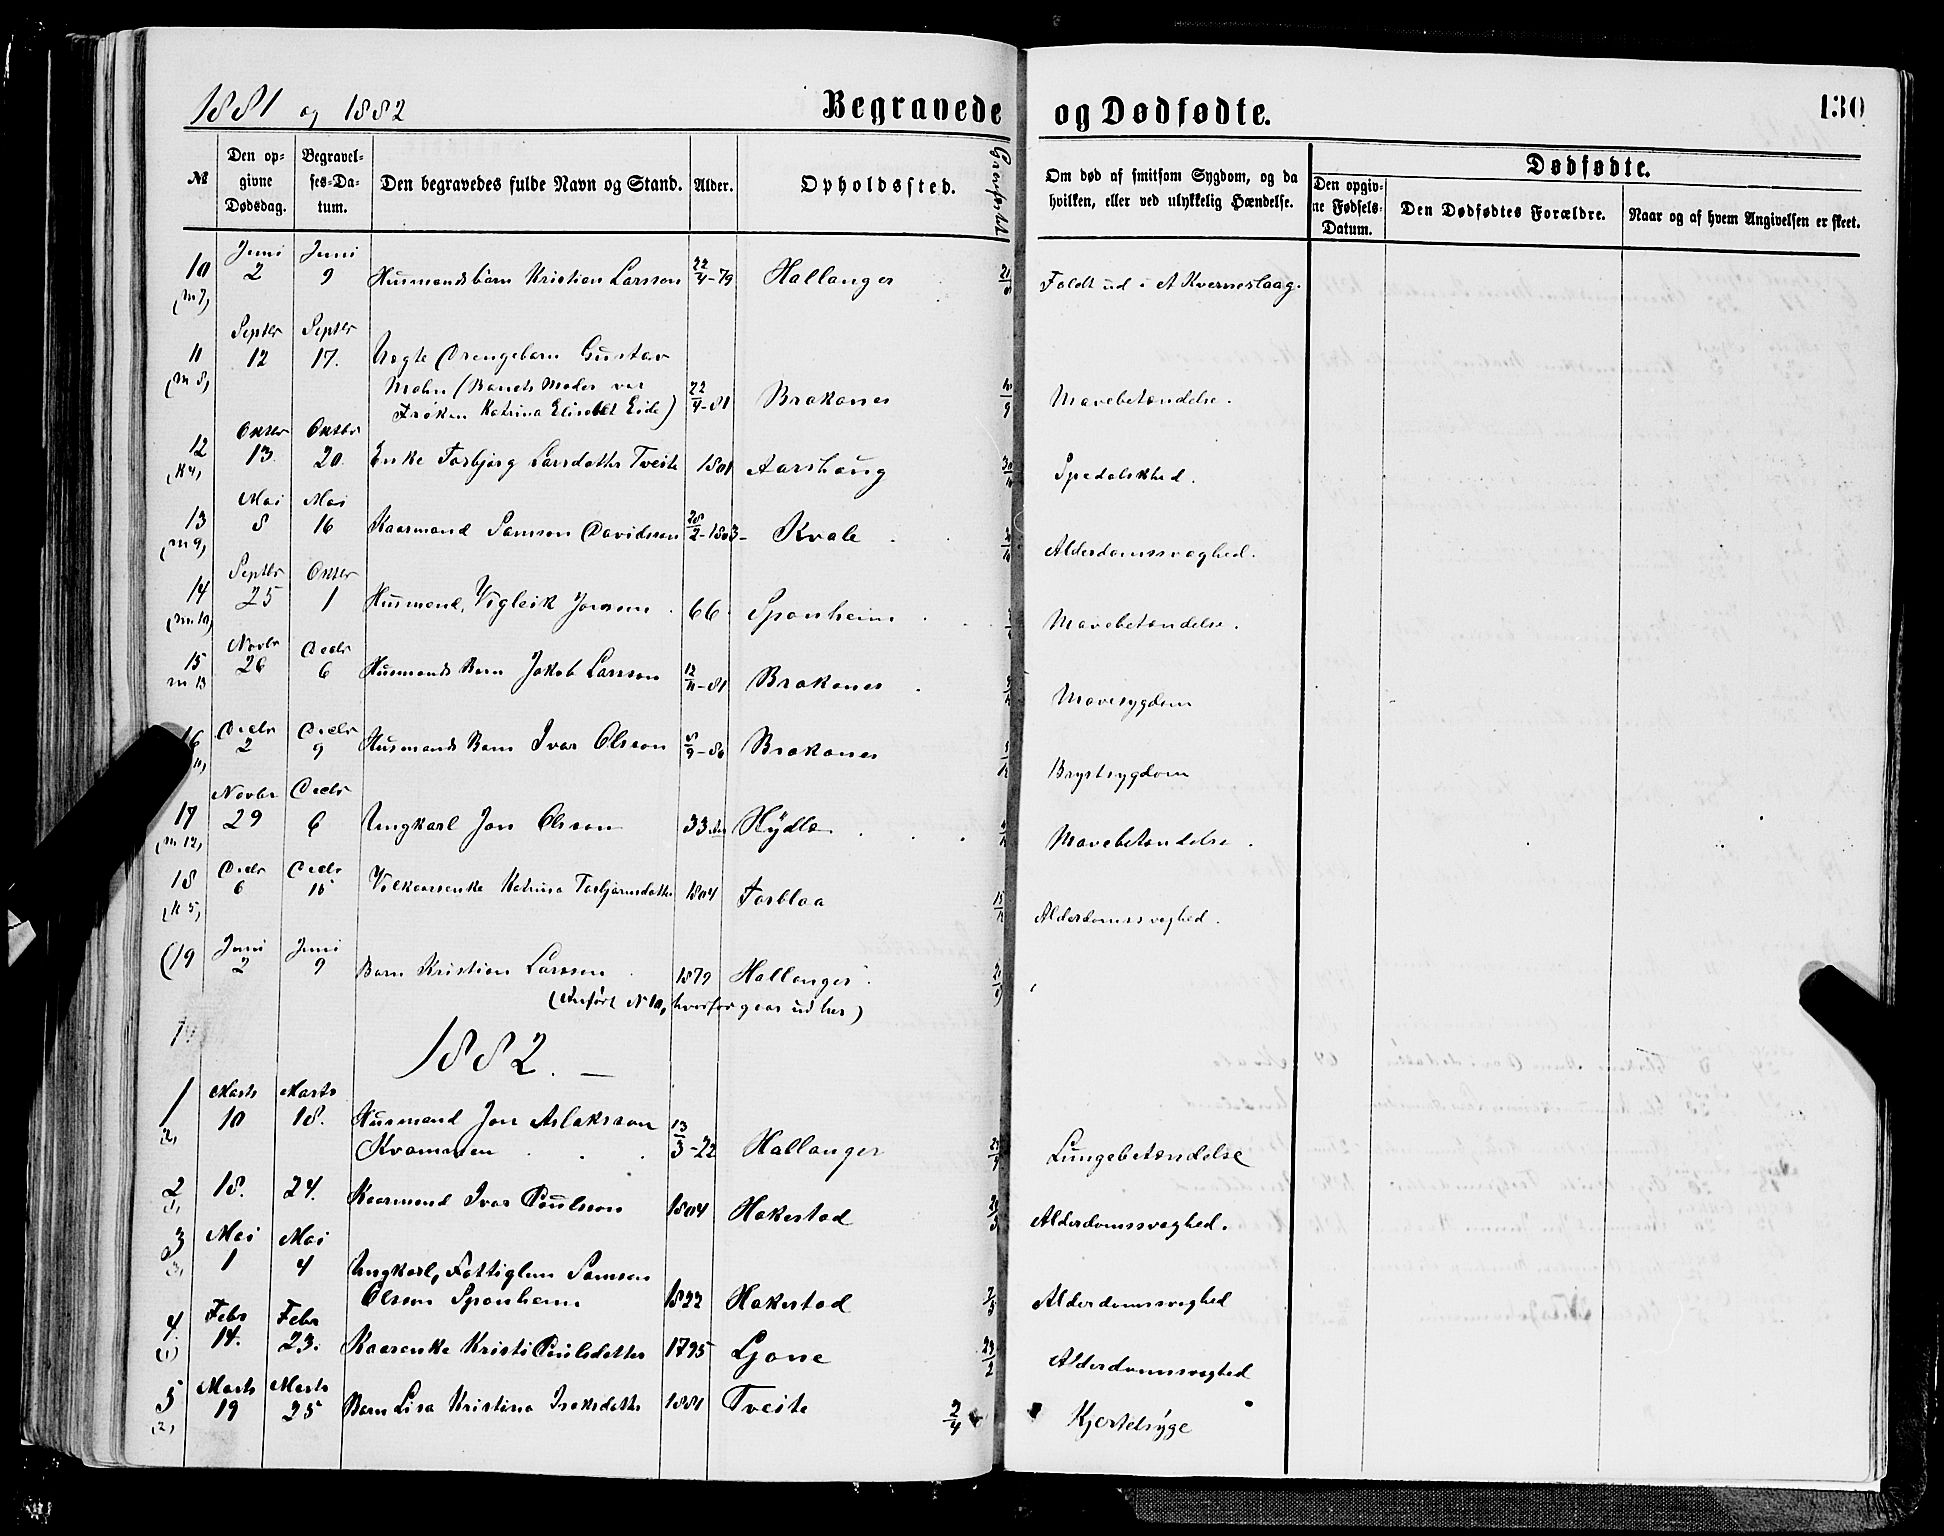 1881 og 1882 Begravede og Dødfødte. 130
№ Den opgivne Dødsdag. Begravelses-Datum. Den begravedes fulde Navn og Stand. Alder. Opholdssted. Om død af smitsom Sygdom, og da hvilken, eller ved ulykkelig Hændelse. Dødfødte.
Den opgivne Fødsels-Datum. Den Dødfødtes Forældre. Naar og af hvem Angivelsen er skeet.
10 (m 7) Juni 2 Juni 9 Husmandsbarn Kristian Larsson 22/4-79 Hallanger Faldt ud i et Kverneslaag.
11 (m 8) Septbr 12 Septbr 17. Uegte Drengebarn Gustav
Mohn (Barnets Moder var
Frøken Katrina Elisabet Eide) 22/4-81 Brakanes Mavebetændelse.
12 (K 4) Oktbr 13. Oktbr 20. Enke Torbjørg Larsdatter Tveite 1801 Aarshaug Spedalskhed.
13 (m 9) Mai 8 Mai 16 Kaarmand Samson Davidsson 28/2-1803 Kvale Alderdomssvaghed.
14 (m 10) Septbr 25 Oktbr 1 Husmand, Vigleik Jonsson 66 Sponheim Mavebetændelse.
15 m 13 Novbr 26 Decbr 6 Husmands Barn Jakob Larsson 12/11-81 Brakanes Mavesygdom
16 Decbr 2 Decbr 9 Husmands Barn Ivar Olsson 8/9-80 Brakanes Brystsygdom
17 (m 12) Novbr 29 Decbr 6 Ungkarl Jon Olsson 33 Hydle Mavebetændelse.
18 (K 5) Decbr 6 Decbr 15 Vilkaarsenke Katrina Torbjørnsdatter 1804 Torblaa 15/12 Alderdomssvaghed.
(19 Juni 2 Juni 9 Barn Kristian Larsson 1879 Hallanger
(Anført N 10, hvorfor gaar ud her)
1882.
1 (2) Marts 10 Marts 18. Husmand Jon Aslaksson
Kvammen 13/3-22 Hallanger Lungebetændelse
2 (1) 18. 24. Kaarmand Ivar Poulsson 1804 Hakestad Alderdomssvaghed.
3 (3) Mai 1 Mai 4 Ungkarl, Fattiglem Samson
Olsson Sponheim 1822 Hakestad 7/5 Alderdomssvaghed
4. (1) Febr 14. Febr 23. Kaarenke Kristi Poulsdatter 1795 Ljone Alderdomssvaghed
5 (2) Marts 19 Marts 25 Barn Lisa Kristina Isaksdatter 1881 Tveite 2/4 Kjertelsyge